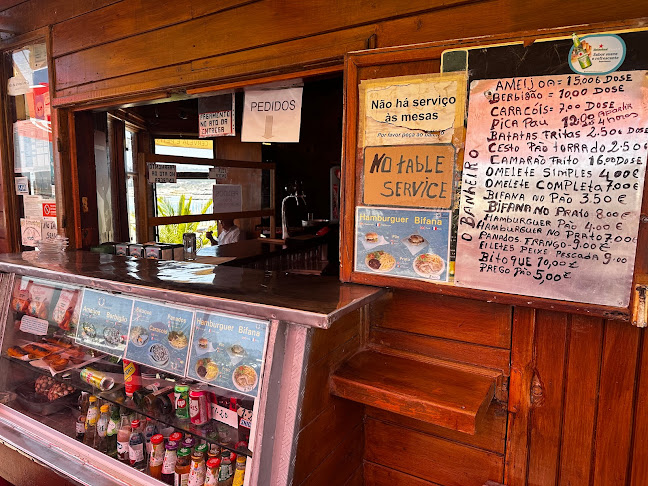 PAGAMENTO
NO ATO DA
ENTREGA
PEDIDOS
Não há serviço
às mesas
Por favor peça ao balcão
NO TABLE
SERVICE
Hamburguer Bifana
O DANHEIRO
AMEIJOA = 15,00 € DOSE
BERBIGÃO = 10,00 DOSE
CARACÓIS = 7,00 DOSE
PICA PAU
BATATAS FRITAS 2.50 € DOSE
CESTO PÃO TORRADO 2.50
CAMARÃO FRITO 16,00 DOSE
OMELETE SIMPLES 4,00 €
OMELETE COMPLETA 7,00 €
BIFANA NO PÃO 3.50 €
BIFANA NO PRATO 8.00 €
HAMBURGUER PÃO 4.00 €
HAMBURGUER NO PRATO 7.00 €
PANADOS FRANGO - 9.00 €
FILETES PEIXE PESCADA 9.00
BITOQUE 10,00 €
PREGO PÃO 5,00 €
Ameijoa
Berbigão
Caracois
Panados
Hamburguer Bifana